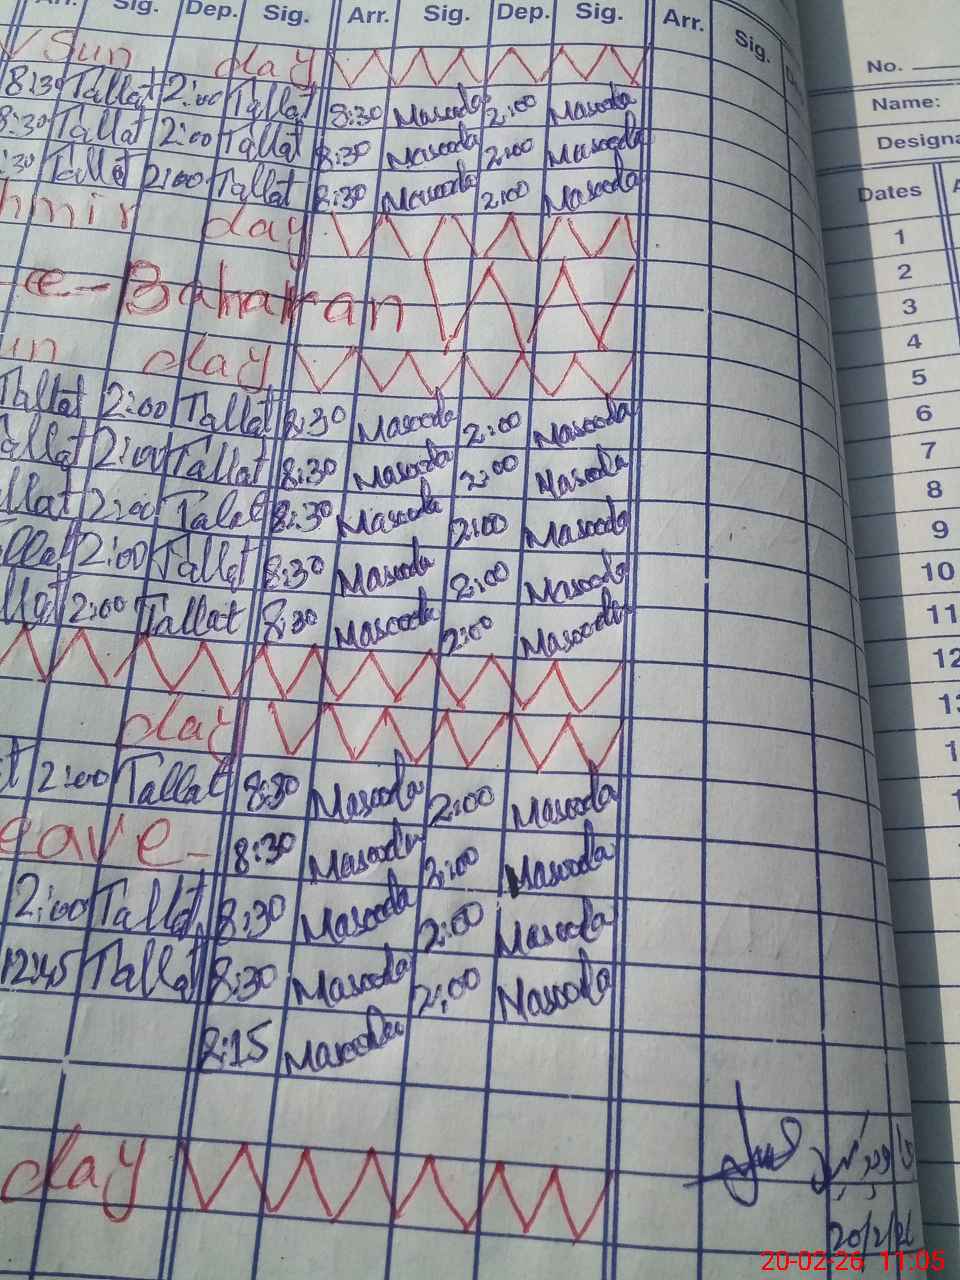 Arr. Sig. Dep. Sig. Arr. Sig. Dep. Sig. Arr. Sig.
Sun day
8:30 Tallat 2:00 Tallat 8:30 Masooda 2:00 Masooda
8:30 Tallat 2:00 Tallat 8:30 Masooda 2:00 Masooda
:30 Tallat 2:00 Tallat 8:30 Masooda 2:00 Masooda
hmir day
-e-Baharan
un day
Tallat 2:00 Tallat 8:30 Masooda 2:00 Masooda
allat 2:00 Tallat 8:30 Masooda 2:00 Masooda
llat 2:00 Talat 8:30 Masooda 2:00 Masooda
llat 2:00 Tallat 8:30 Masooda 2:00 Masooda
llat 2:00 Tallat 8:30 Masooda 2:00 Masooda
day
t 2:00 Tallat 8:30 Masooda 2:00 Masooda
eave 8:30 Masooda 2:00 Masooda
2:00 Tallat 8:30 Masooda 2:00 Masooda
12:45 Tallat 8:30 Masooda 2:00 Masooda
8:15 Masooda
day
20/2/26
No.
Name:
Designa
Dates A
1
2
3
4
5
6
7
8
9
10
11
12
13
1
1
20-02-26 11:05